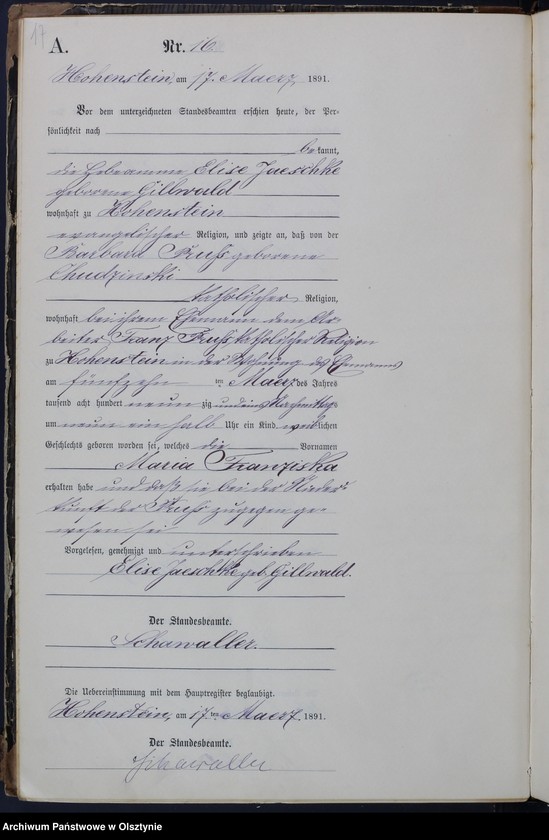 17
A. Nr. 16.
Hohenstein, am 17. Maerz 1891.
Vor dem unterzeichneten Standesbeamten erschien heute, der Per-
sönlichkeit nach
be kannt,
die Hebeamme Elise Jaeschke
geborene Gillwald
wohnhaft zu Hohenstein
evangelischer Religion, und zeigte an, daß von der
Barbara geborene
Chudzinski
katholischer Religion,
wohnhaft bei ihrem Ehemann dem Ar-
beiter Franz katholischer Religion
zu Hohenstein in der Wohnung des Ehemanns
am fünfzehn ten Maerz des Jahres
tausend acht hundert neun zig und eins Nachmittags
um neun ein halb Uhr ein Kind weib lichen
Geschlechts geboren worden sei, welches die Vornamen
Maria Franziska
erhalten habe und daß sie bei der Nieder-
kunft der zugegen ge-
wesen sei
Vorgelesen, genehmigt und unterschrieben
Elise Jaeschke geb. Gillwald.
Der Standesbeamte.
Schawaller.
Die Uebereinstimmung mit dem Hauptregister beglaubigt.
Hohenstein, am 17. ten Maerz 1891.
Der Standesbeamte.
Schawaller
Archiwum Państwowe w Olsztynie